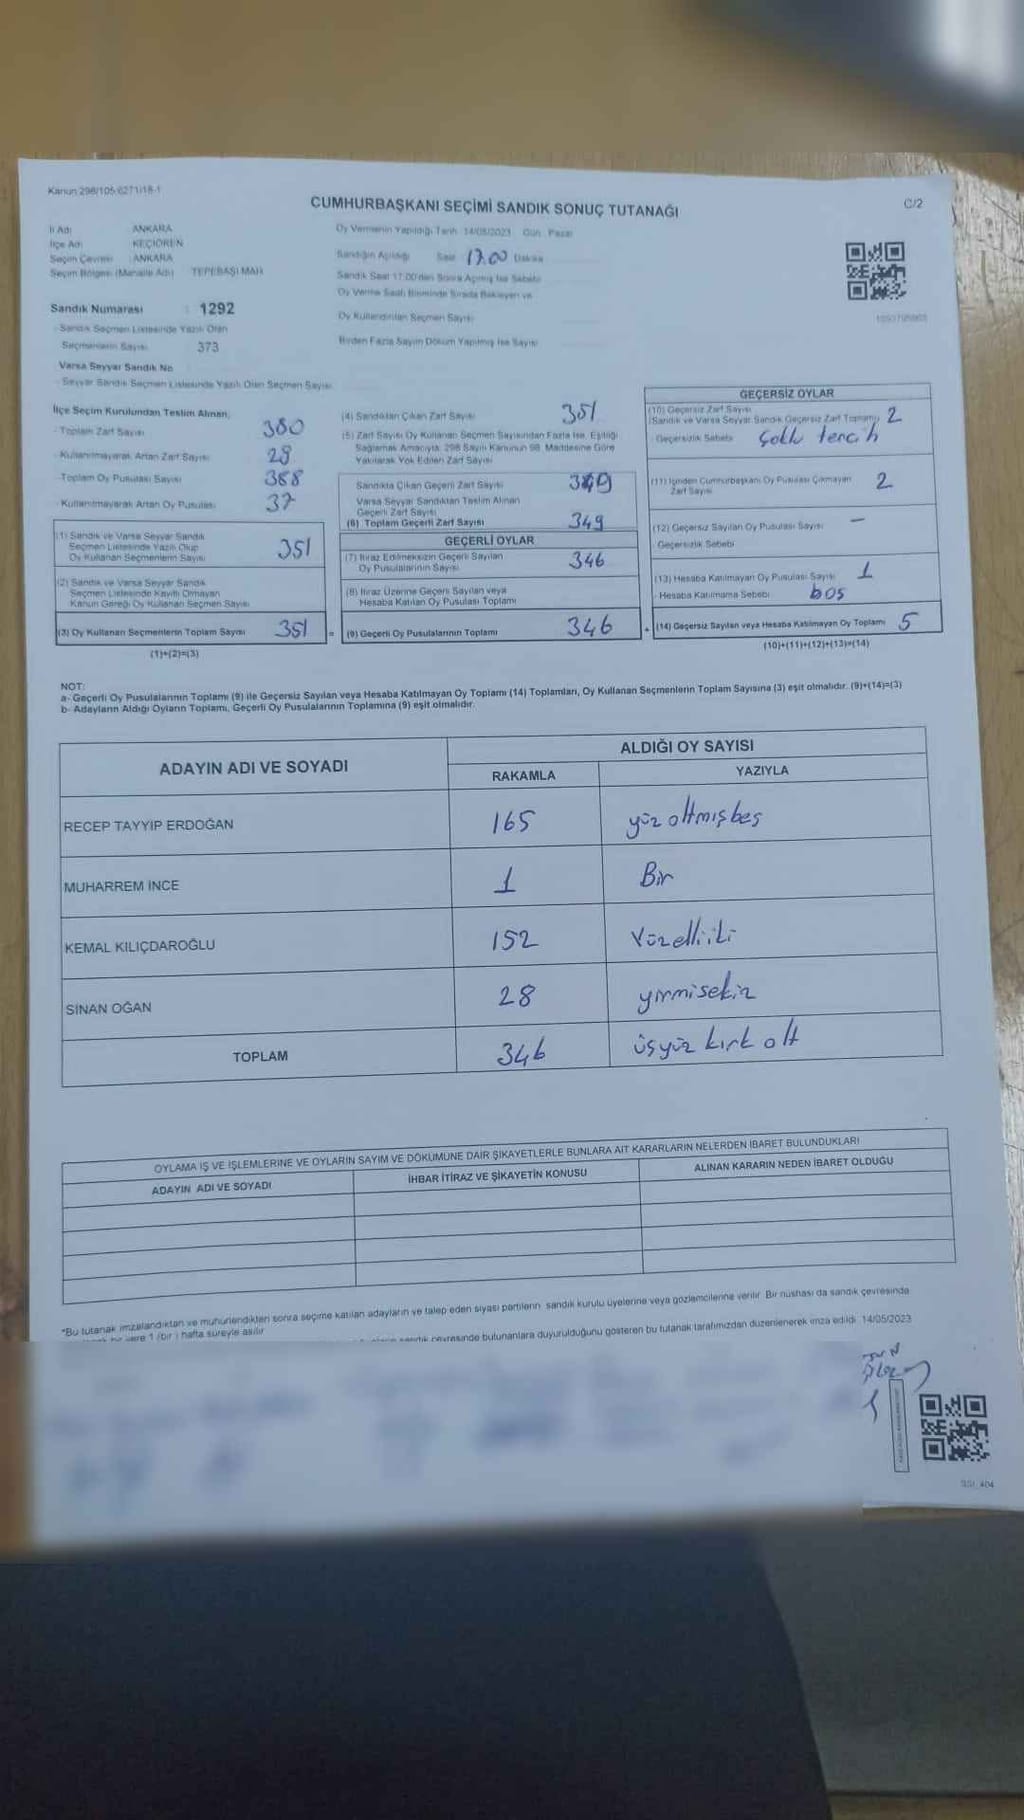 Kanun 298/105-6271/18-1
CUMHURBAŞKANI SEÇİMİ SANDIK SONUÇ TUTANAĞI
C/2
İl Adı ANKARA
İlçe Adı KEÇİÖREN
Seçim Çevresi ANKARA
Seçim Bölgesi (Mahalle Adı) TEPEBAŞI MAH
Sandık Numarası : 1292
Sandık Seçmen Listesinde Yazılı Olan
Seçmenlerin Sayısı 373
Varsa Seyyar Sandık No
Seyyar Sandık Seçmen Listesinde Yazılı Olan Seçmen Sayısı
Oy Vermenin Yapıldığı Tarih 14/05/2023 Gün Pazar
Sandığın Açıldığı Saat 17.00 Dakika
Sandık Saat 17:00'den Sonra Açılmış İse Sebebi
Oy Verme Saati Bitiminde Sırada Bekleyen ve
Oy Kullandırılan Seçmen Sayısı
Birden Fazla Sayım Döküm Yapılmış İse Sayısı
İlçe Seçim Kurulundan Teslim Alınan;
-Toplam Zarf Sayısı 380
-Kullanılmayarak Artan Zarf Sayısı 29
-Toplam Oy Pusulası Sayısı 388
-Kullanılmayarak Artan Oy Pusulası 37
(1) Sandık ve Varsa Seyyar Sandık
Seçmen Listesinde Yazılı Olup
Oy Kullanan Seçmenlerin Sayısı 351
(2) Sandık ve Varsa Seyyar Sandık
Seçmen Listesinde Kayıtlı Olmayan
Kanun Gereği Oy Kullanan Seçmen Sayısı
(3) Oy Kullanan Seçmenlerin Toplam Sayısı 351
(1)+(2)=(3)
(4) Sandıktan Çıkan Zarf Sayısı 351
(5) Zarf Sayısı Oy Kullanan Seçmen Sayısından Fazla İse, Eşitliği
Sağlamak Amacıyla, 298 Sayılı Kanunun 98. Maddesine Göre
Yakılarak Yok Edilen Zarf Sayısı
Sandıkta Çıkan Geçerli Zarf Sayısı 349
Varsa Seyyar Sandıktan Teslim Alınan
Geçerli Zarf Sayısı
(6) Toplam Geçerli Zarf Sayısı 349
GEÇERLİ OYLAR
(7) İtiraz Edilmeksizin Geçerli Sayılan
Oy Pusulalarının Sayısı 346
(8) İtiraz Üzerine Geçerli Sayılan veya
Hesaba Katılan Oy Pusulası Toplamı
= (9) Geçerli Oy Pusulalarının Toplamı 346
GEÇERSİZ OYLAR
(10) Geçersiz Zarf Sayısı
(Sandık ve Varsa Seyyar Sandık Geçersiz Zarf Toplamı) 2
Geçersizlik Sebebi Çoklu tercih
(11) İçinden Cumhurbaşkanı Oy Pusulası Çıkmayan
Zarf Sayısı 2
(12) Geçersiz Sayılan Oy Pusulası Sayısı –
Geçersizlik Sebebi
(13) Hesaba Katılmayan Oy Pusulası Sayısı 1
Hesaba Katılmama Sebebi boş
+ (14) Geçersiz Sayılan veya Hesaba Katılmayan Oy Toplamı 5
(10)+(11)+(12)+(13)=(14)
NOT:
a- Geçerli Oy Pusulalarının Toplamı (9) ile Geçersiz Sayılan veya Hesaba Katılmayan Oy Toplamı (14) Toplamları, Oy Kullanan Seçmenlerin Toplam Sayısına (3) eşit olmalıdır. (9)+(14)=(3)
b- Adayların Aldığı Oyların Toplamı, Geçerli Oy Pusulalarının Toplamına (9) eşit olmalıdır.
ADAYIN ADI VE SOYADI ALDIĞI OY SAYISI
RAKAMLA YAZIYLA
RECEP TAYYİP ERDOĞAN 165 yüz altmışbeş
MUHARREM İNCE 1 Bir
KEMAL KILIÇDAROĞLU 152 Yüzelliiki
SİNAN OĞAN 28 yirmisekiz
TOPLAM 346 üçyüz kırk alt
OYLAMA İŞ VE İŞLEMLERİNE VE OYLARIN SAYIM VE DÖKÜMÜNE DAİR ŞİKAYETLERLE BUNLARA AİT KARARLARIN NELERDEN İBARET BULUNDUKLARI
ADAYIN ADI VE SOYADI İHBAR İTİRAZ VE ŞİKAYETİN KONUSU ALINAN KARARIN NEDEN İBARET OLDUĞU
*Bu tutanak imzalandıktan ve mühürlendikten sonra seçime katılan adayların ve talep eden siyasi partilerin sandık kurulu üyelerine veya gözlemcilerine verilir. Bir nüshası da sandık çevresinde
yere 1 (bir) hafta süreyle asılır
sandık çevresinde bulunanlara duyurulduğunu gösteren bu tutanak tarafımızdan düzenlenerek imza edildi. 14/05/2023